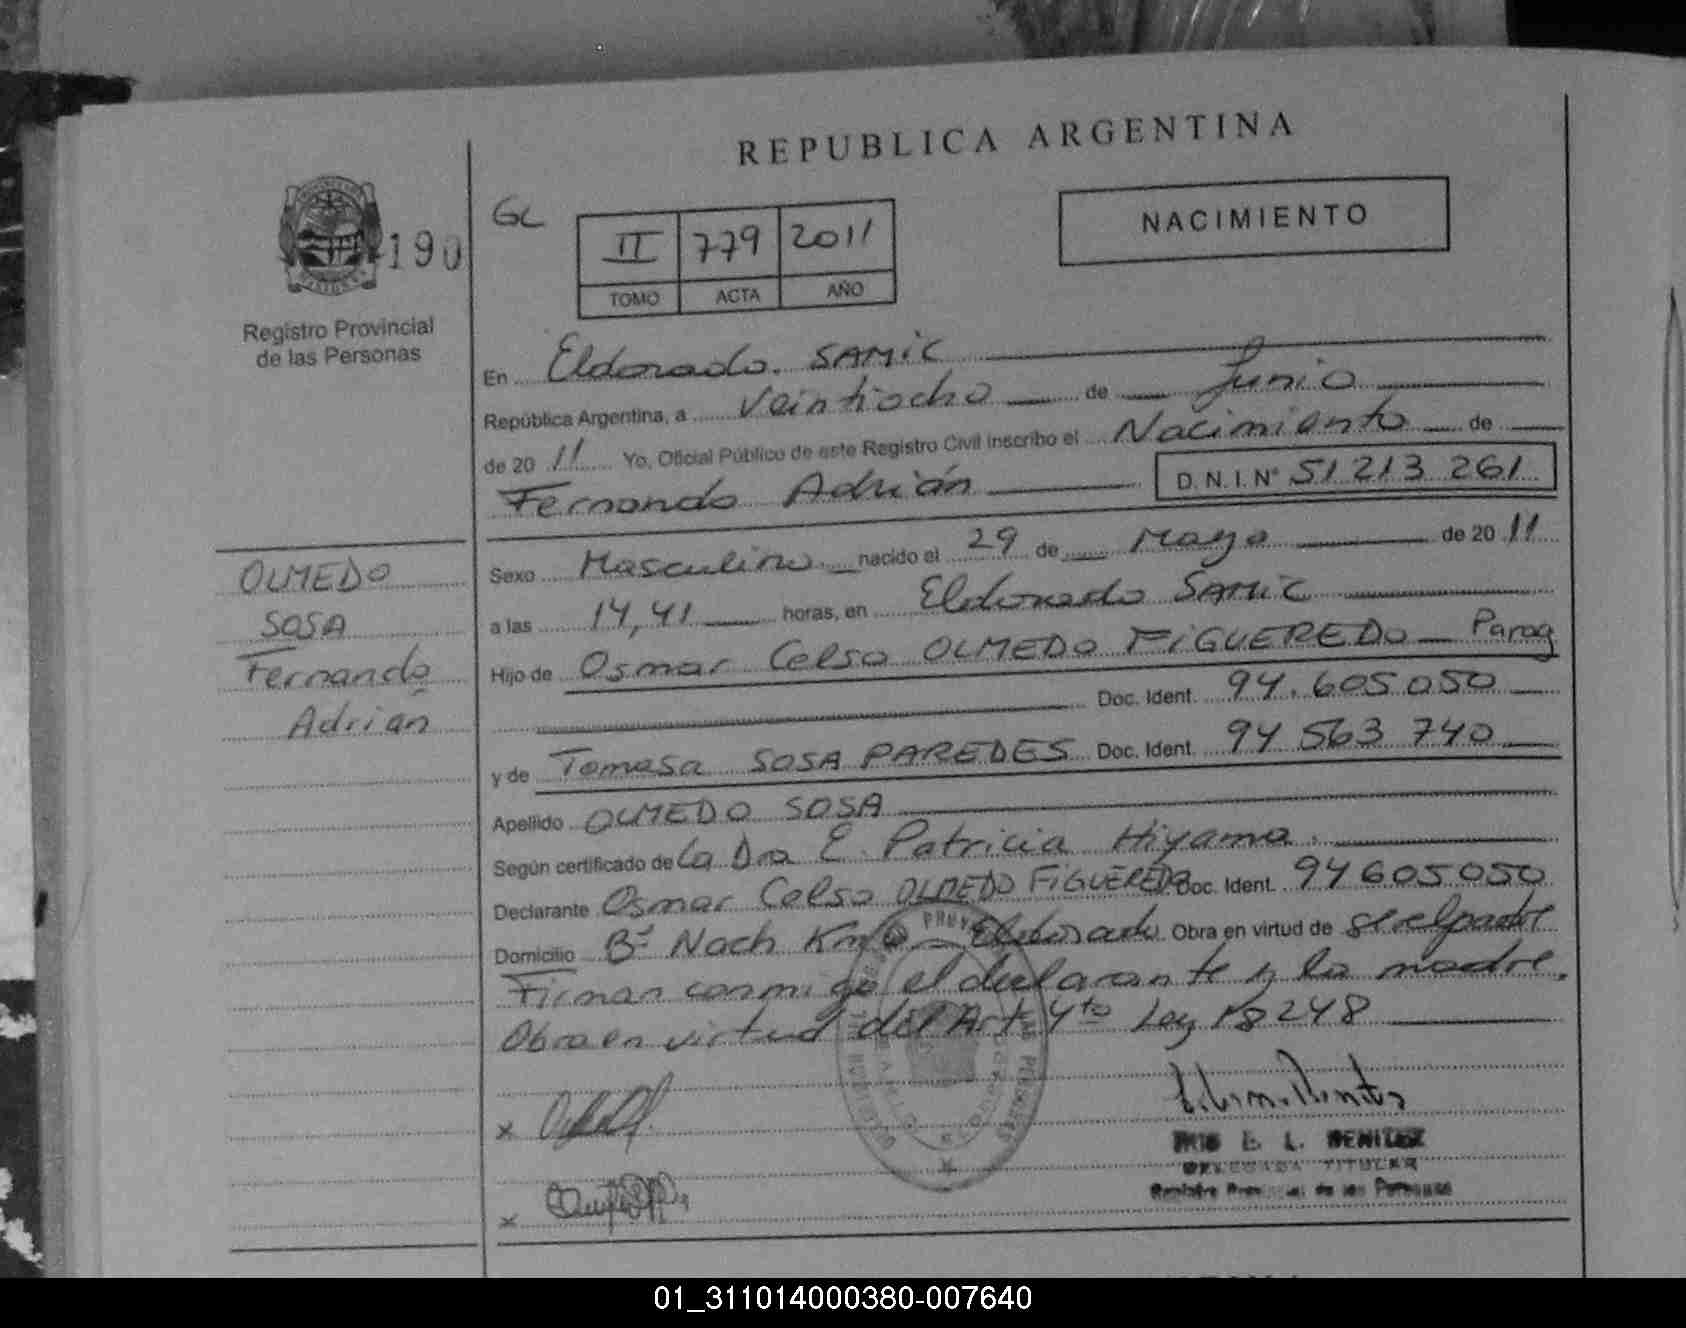 REPUBLICA ARGENTINA
190
Registro Provincial
de las Personas
GL
II 779 2011
TOMO ACTA AÑO
NACIMIENTO
En Eldorado. SAMIC
República Argentina, a Veintiocho de Junio
de 20 11 Yo, Oficial Público de este Registro Civil inscribo el Nacimiento de
Fernando Adrián D.N.I.Nº 51 213 261
OLMEDO
SOSA
Fernando
Adrián
Sexo Masculino nacido el 29 de Mayo de 20 11
a las 14,41 horas, en Eldorado SAMIC
Hijo de Osmar Celso OLMEDO FIGUEREDO Parag
Doc. Ident. 94.605050
y de Tomasa SOSA PAREDES Doc. Ident. 94 563 740
Apellido OLMEDO SOSA
Según certificado de La Dra E. Patricia Hiyama.
Declarante Osmar Celso OLMEDO FIGUEREDO Doc. Ident. 94 605 050
Domicilio Bº Nach Km Eldorado Obra en virtud de ser el padre
Firman conmigo el declarante y la madre.
Obra en virtud del Art 4to Ley 18248
x
x
E. L. BENITEZ
DELEGADA TITULAR
Registro Provincial de las Personas
01_311014000380-007640